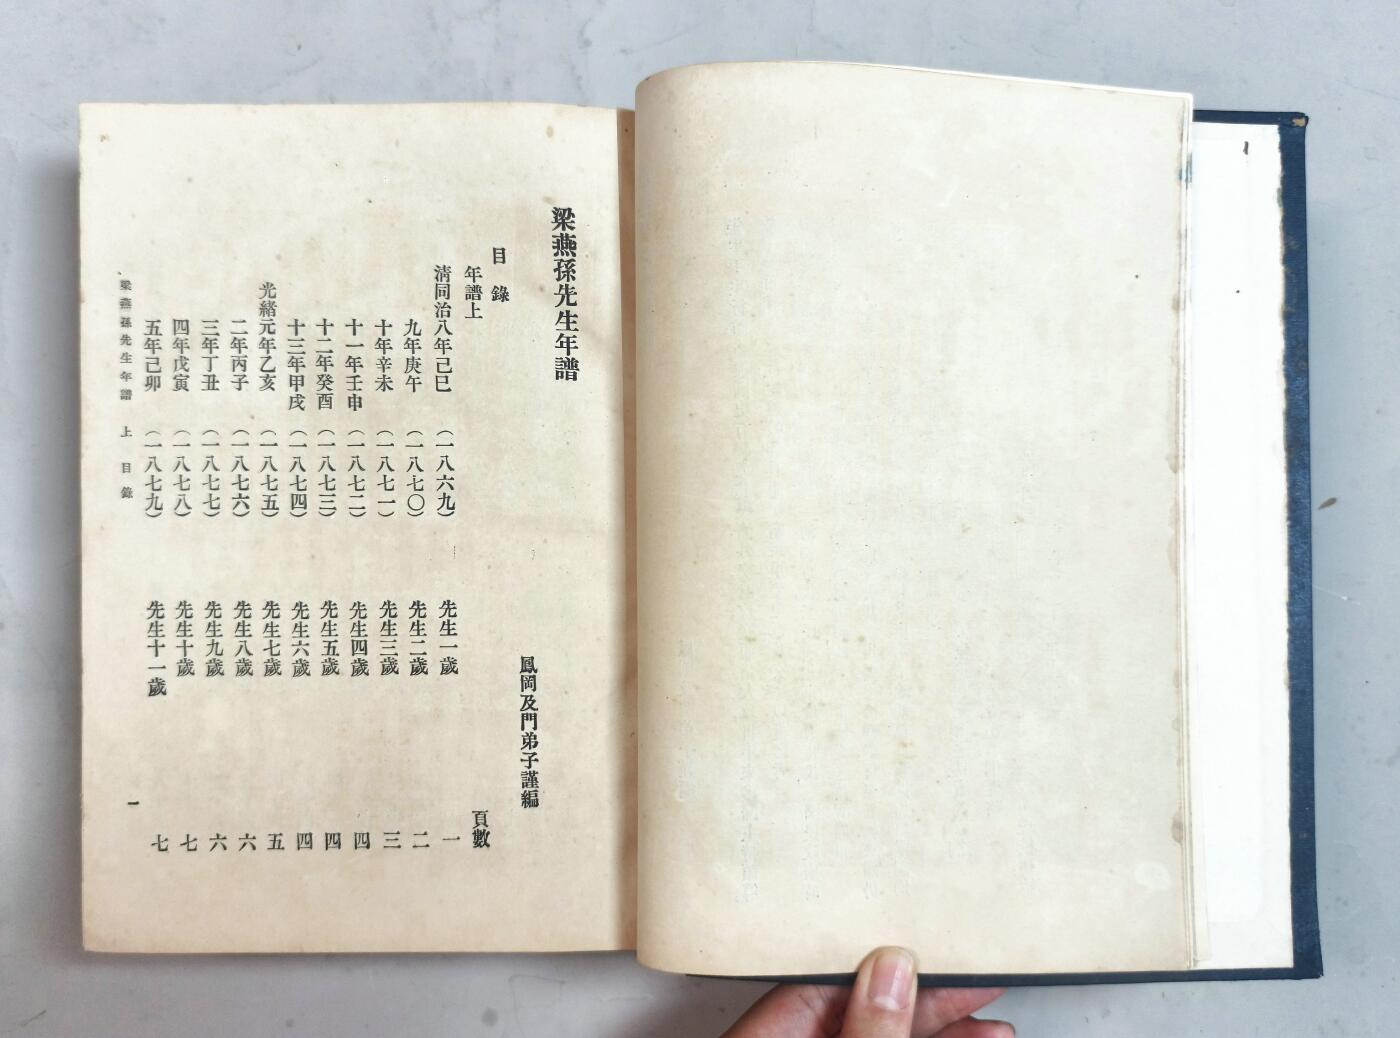 梁燕孫先生年譜
鳳岡及門弟子謹編
目錄
年譜上 頁數
清同治八年己巳 (一八六九) 先生一歲 一
九年庚午 (一八七〇) 先生二歲 二
十年辛未 (一八七一) 先生三歲 三
十一年壬申 (一八七二) 先生四歲 四
十二年癸酉 (一八七三) 先生五歲 四
十三年甲戌 (一八七四) 先生六歲 四
光緒元年乙亥 (一八七五) 先生七歲 五
二年丙子 (一八七六) 先生八歲 六
三年丁丑 (一八七七) 先生九歲 六
四年戊寅 (一八七八) 先生十歲 七
五年己卯 (一八七九) 先生十一歲 七
梁燕孫先生年譜 上 目錄 一